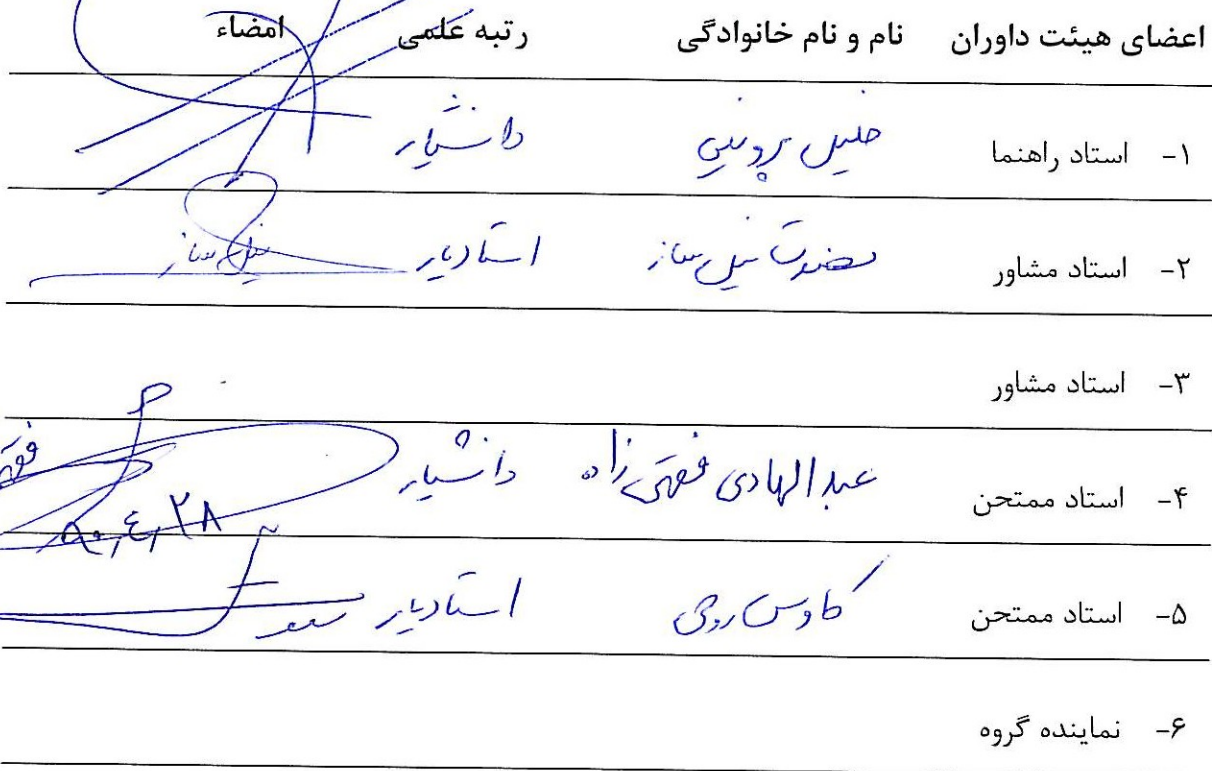 اعضای هیئت داوران نام و نام خانوادگی رتبه علمی امضاء
۱- استاد راهنما خلیل پروینی دانشیار
۲- استاد مشاور نصرت نیل ساز استادیار نیل ساز
۳- استاد مشاور
۴- استاد ممتحن عبدالهادی فقهی زاده دانشیار
۹۰،٤،۲۸
۵- استاد ممتحن کاوس روحی استادیار
۶- نماینده گروه